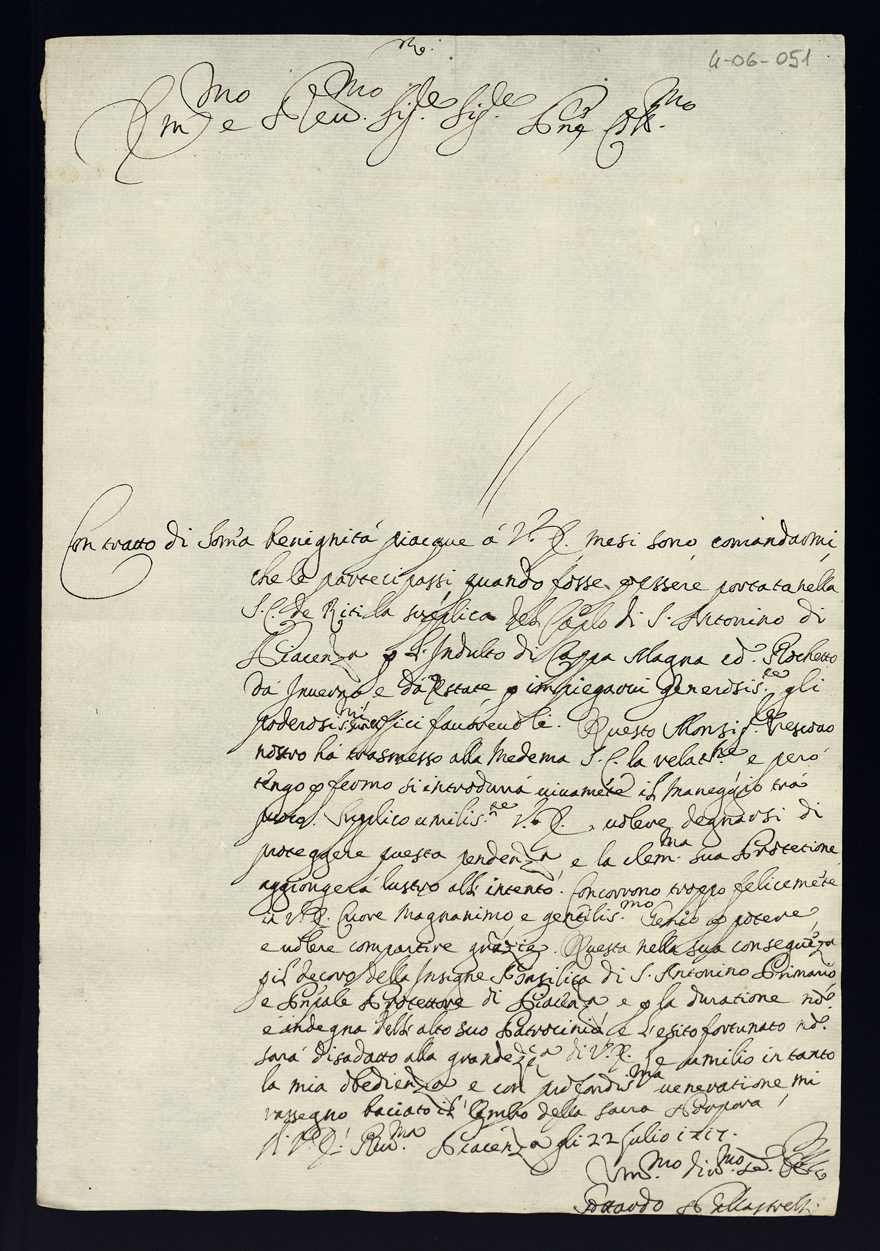 4-06-051
Em.mo e Reu.mo Sig.re Sig.re Pñe Col.mo
Con tratto di som̃a benignità piacque à V.E. mesi sono comãndarmi,
che le partecipassi quando fosse p essere portata nella
S.C. de Riti la suplica del Caplo di S. Antonino di
Piacenza p l'Indulto di Cappa Magna ed. Rochetto
dà Inuerno e dà Estate p impiegarui generosis.te gli
poderosis.mi uffici fauoreuoli. Questo Monsig.re Vescouo
nostro hà trasmesso alla Medema S.C. la relat.ne e però
tengo p fermo si introdurrà uiuamẽte il maneggio trà
poco. Suplico umilis.te V.E. uolere degnarsi di
proteggere questa pendenza e la clem.ma sua Protetione
aggiongerà lustro all'intento. Concorrono troppo felicemẽte
in V.E. Cuore Magnanimo e gentilis.mo Genio p potere,
e uolere compartire grazie. Questa nella sua conseguẽza
p il decoro della Insigne Basilica di S. Antonino Primario
e Pñpale Protettore di Piacenza e p la duratione nõ
è indegna dell'alto suo Patrocinio e l'esito fortunato nõ
sarà disadatto alla grandezza di V.E. e umilio in tanto
la mia obedienza e con profondis.ma veneratione mi
rassegno baciato il lembo della sacra Porpora
D. V.E. Reu.ma Piacenza gli 22 Julio 1717.
Vm.mo diu.mo
Pallastrelli